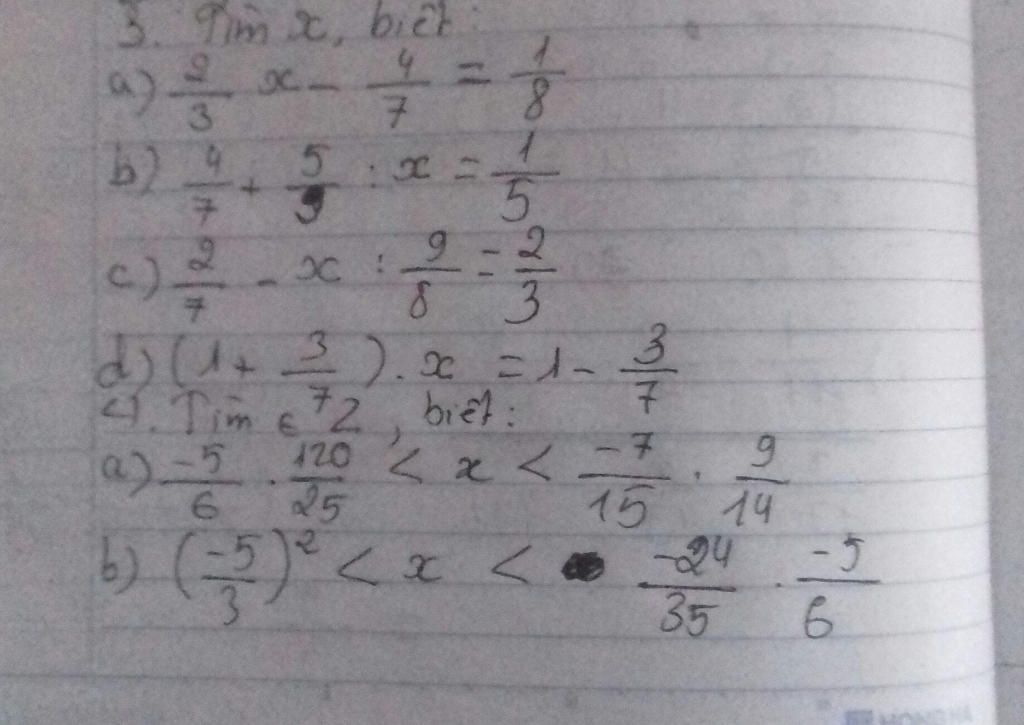 3. Tìm x, biết:
a) 2/3 x - 4/7 = 1/8
b) 4/7 + 5/9 : x = 1/5
c) 2/7 - x : 9/8 = 2/3
d) (1 + 3/7) . x = 1 - 3/7
4. Tìm ∈ Z, biết:
a) -5/6 . 120/25 < x < -7/15 . 9/14
b) (-5/3)² < x < -24/35 . -5/6